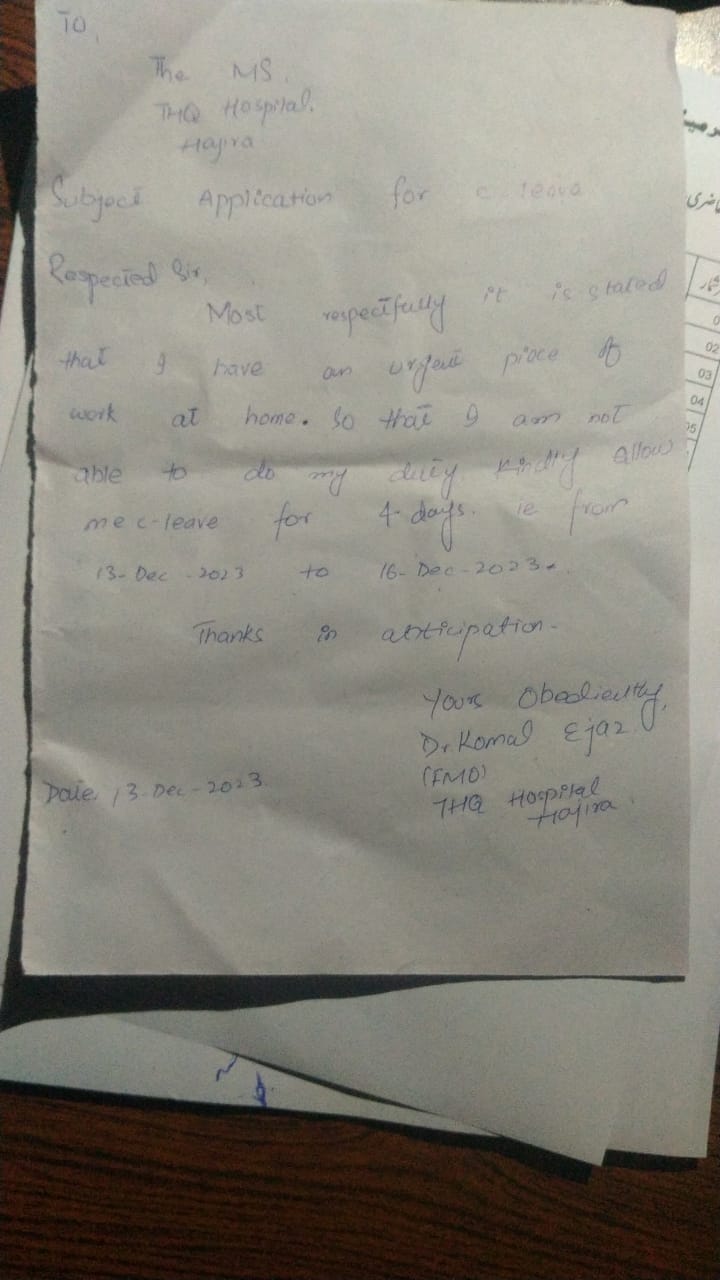 To,
The MS.
THQ Hospital.
Hajira
Subject Application for c-leave
Respected Sir,
Most respectfully it is stated
that I have an urgent piece of
work at home. So that I am not
able to do my duty. Kindly allow
me c-leave for 4-days. ie from
13-Dec-2023 to 16-Dec-2023.
Thanks in anticipation-
Yours Obediently,
Dr. Komal Ejaz
(EMO)
THQ Hospital
Hajira
Date, 13-Dec-2023.
02
03
04